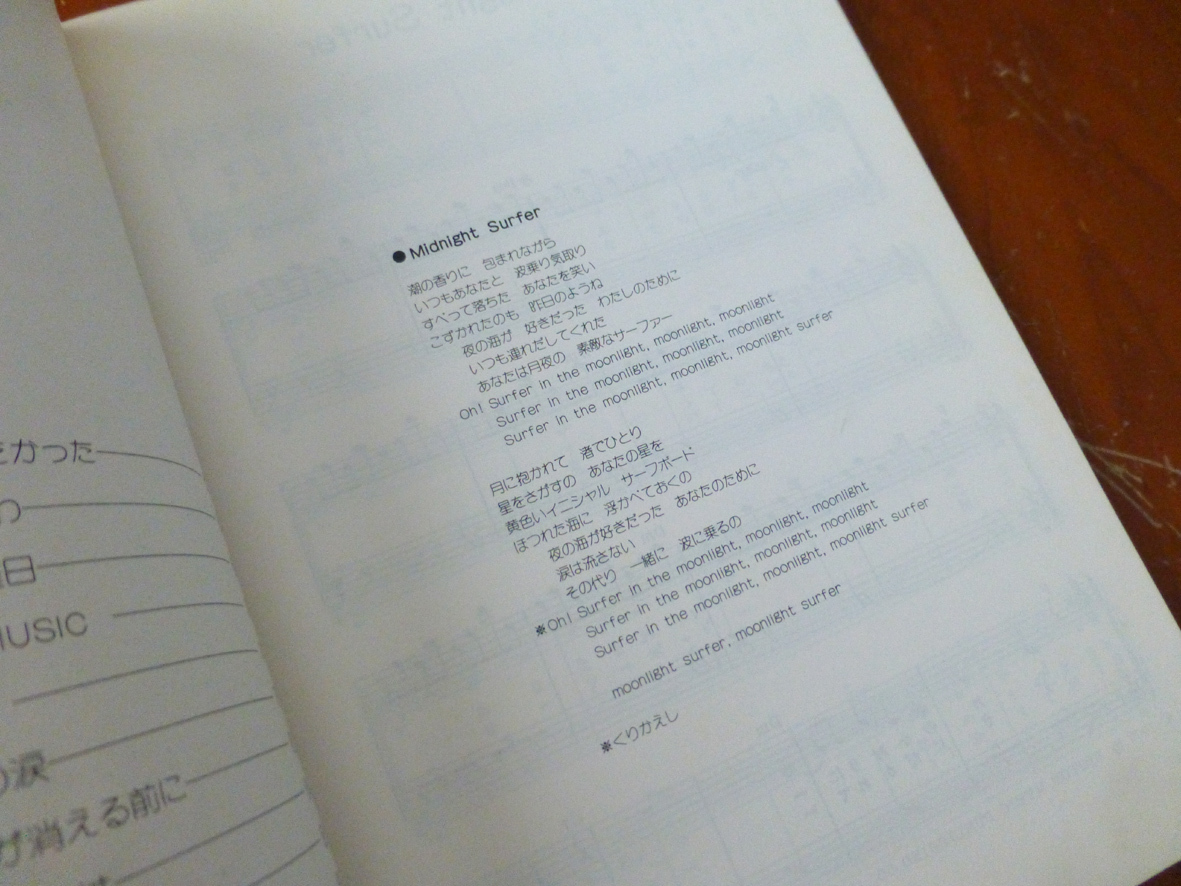 をかった
日
MUSIC
涙
が消える前に
●Midnight Surfer
潮の香りに 包まれながら
いつもあなたと 波乗り気取り
すべって落ちた あなたを笑い
こずかれたのも 昨日のようね
夜の海が 好きだった わたしのために
いつも連れだしてくれた
あなたは月夜の 素敵なサーファー
Oh! Surfer in the moonlight, moonlight, moonlight
Surfer in the moonlight, moonlight, moonlight
Surfer in the moonlight, moonlight, moonlight surfer
月に抱かれて 渚でひとり
星をさがすの あなたの星を
黄色いイニシャル サーフボード
ほつれた海に 浮かべておくの
夜の海が好きだった あなたのために
涙は流さない
その代り 一緒に 波に乗るの
※Oh! Surfer in the moonlight, moonlight, moonlight
Surfer in the moonlight, moonlight, moonlight
Surfer in the moonlight, moonlight, moonlight surfer
moonlight surfer, moonlight surfer
※くりかえし